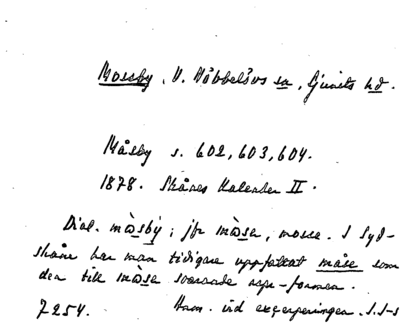 Mossby, V. Nöbbelövs sn, Ljunits hd.
Måsby s. 602, 603, 604.
1878. Skånes Kalender II.
Dial. måsby; jfr måsa, mosse. I Syd-
skåne har man tidigare uppfattat måse som
den till måsa svarande rspr-formen.
7254. Anm. vid excerperingen.